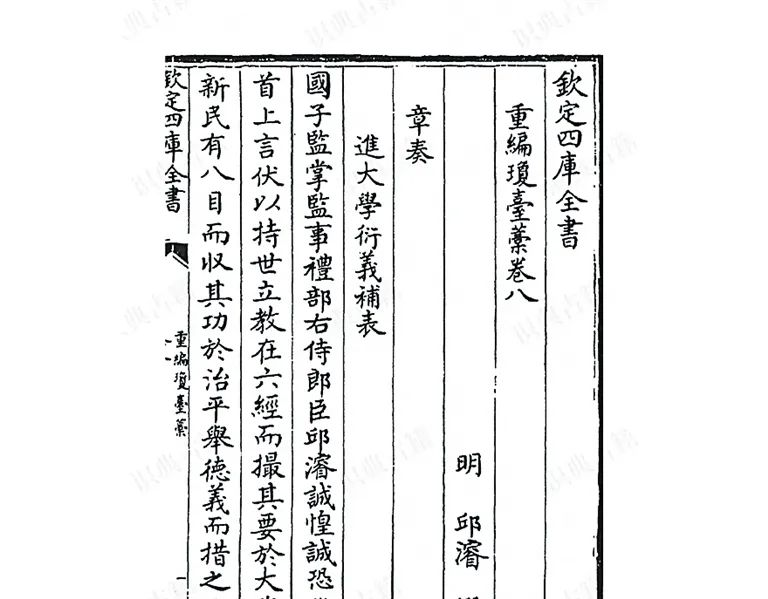 欽定四庫全書
重編瓊臺藁卷八
明 邱濬
章奏
進大學衍義補表
國子監掌監事禮部右侍郎臣邱濬誠惶誠恐
首上言伏以持世立教在六經而撮其要於大
新民有八目而收其功於治平舉德義而措之
欽定四庫全書
重編瓊臺藁